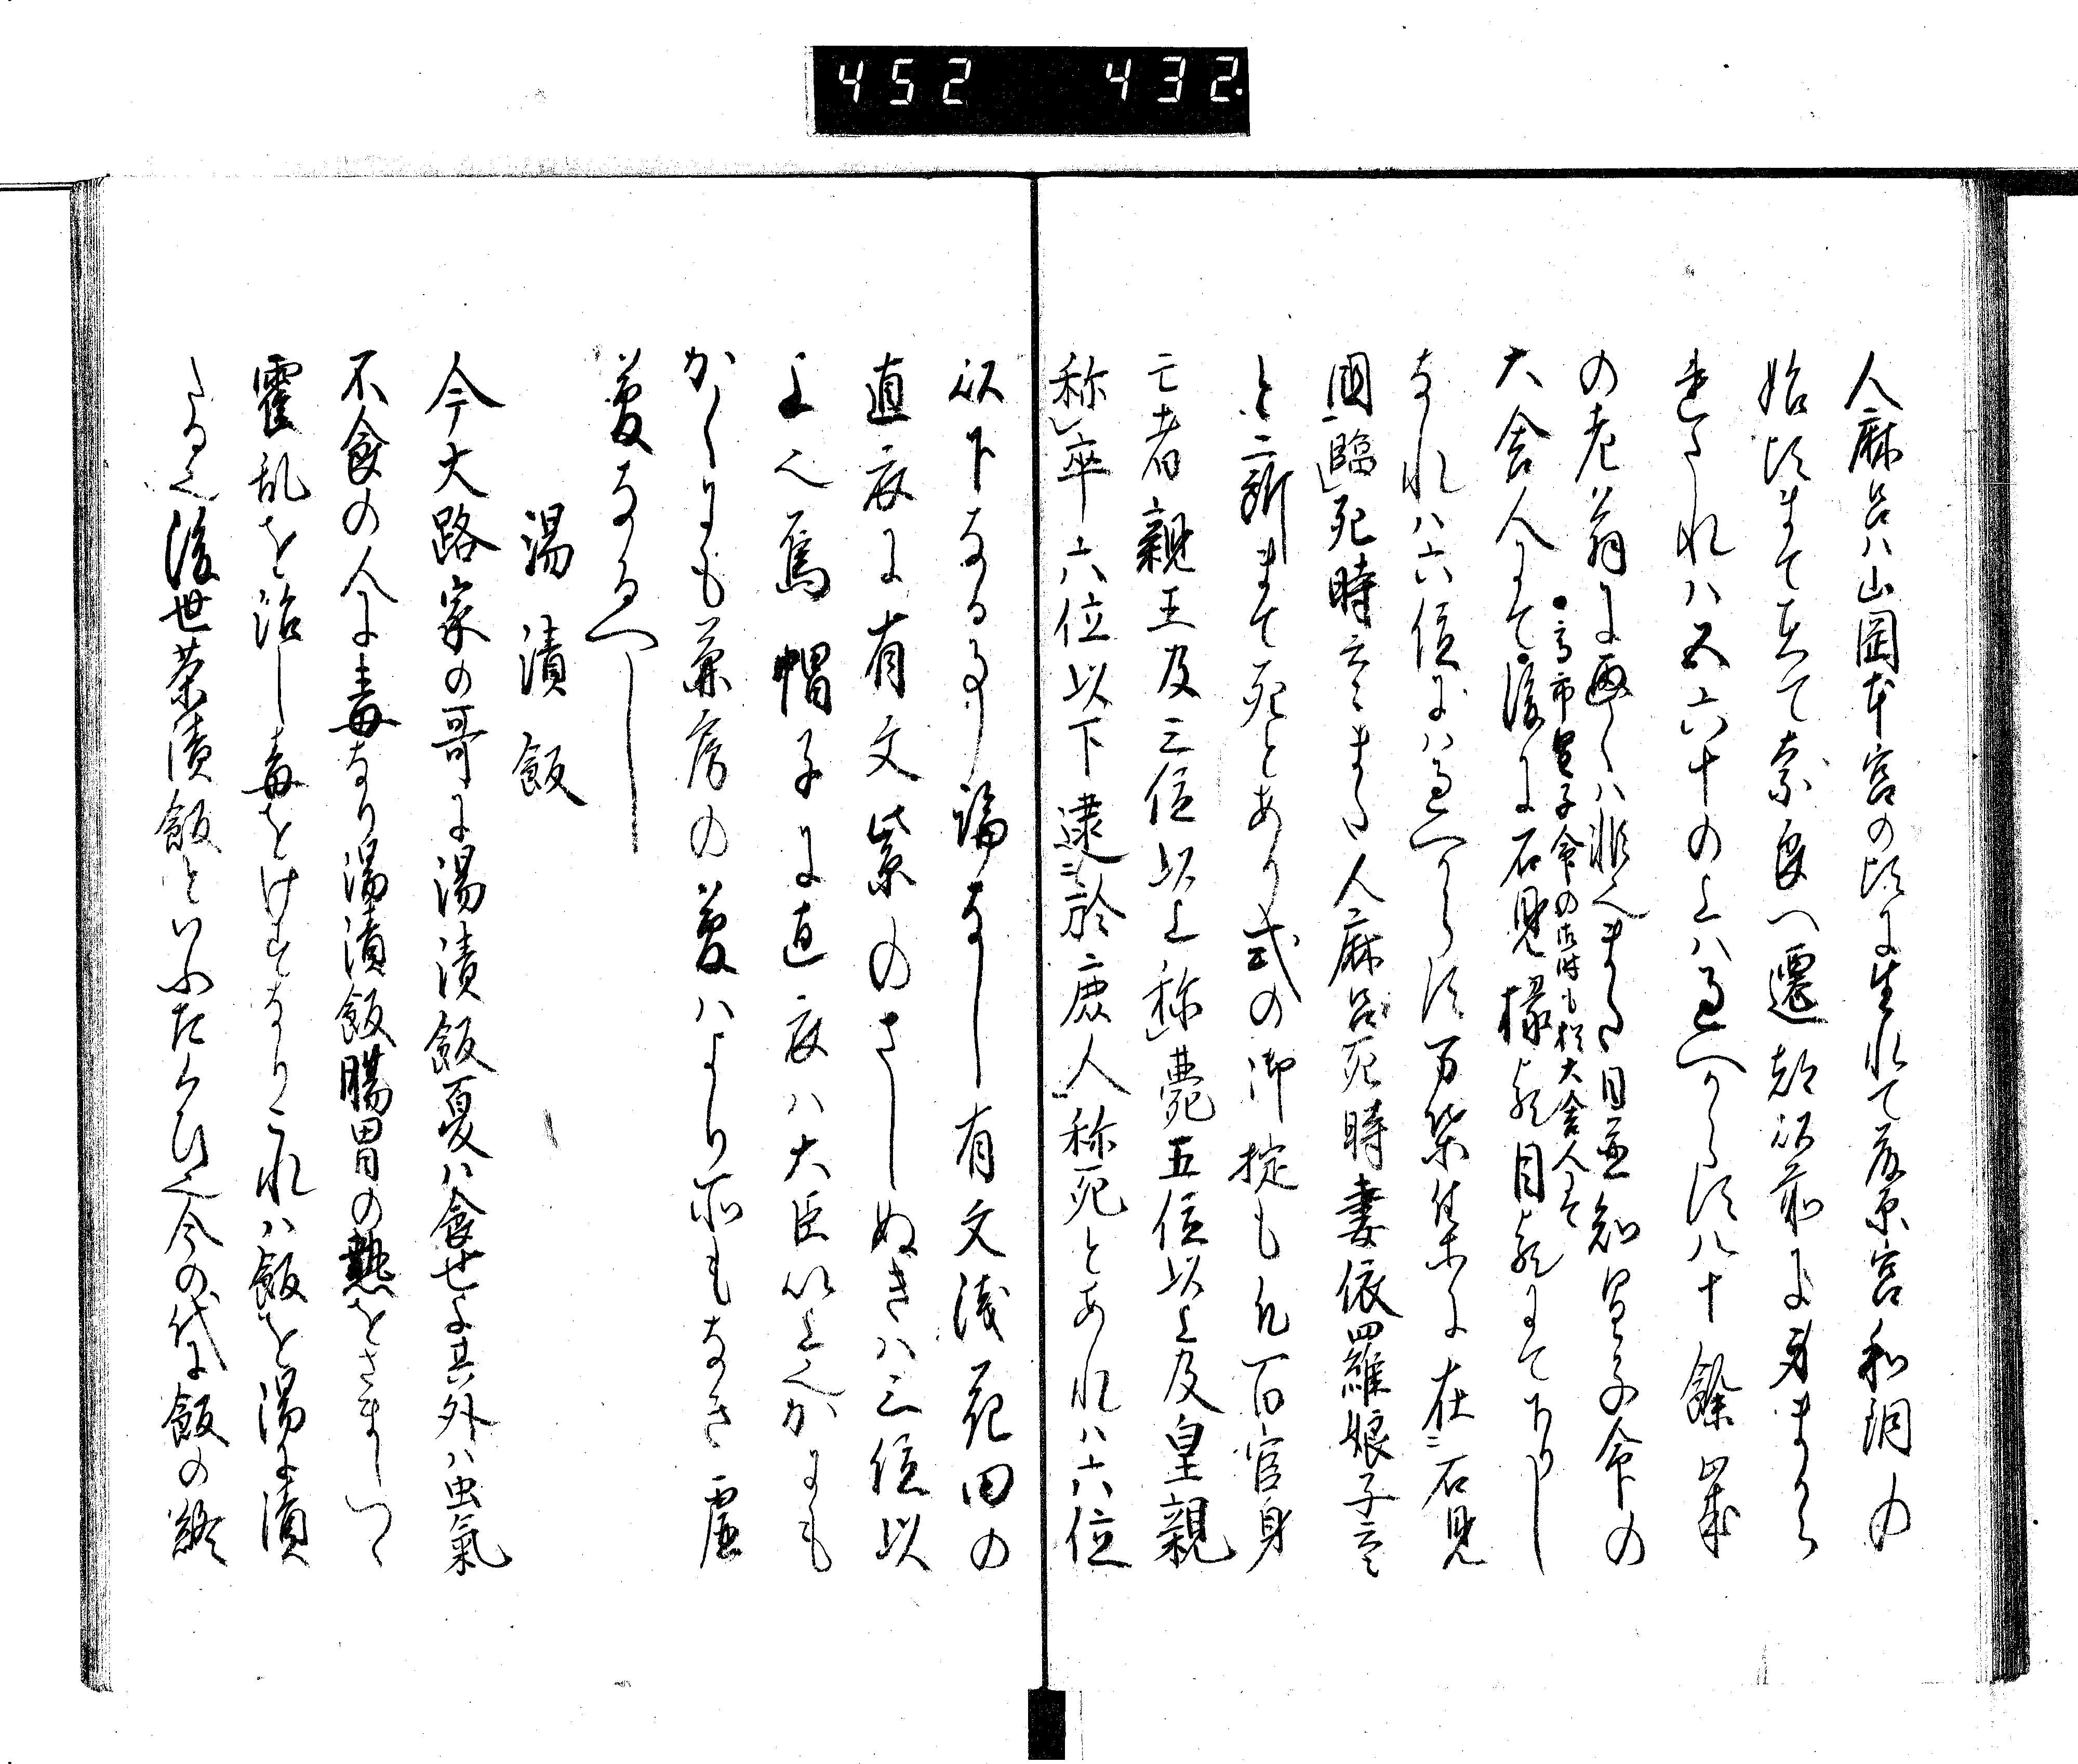 452 432.
人麻呂ハ山岡本宮の頃に生れて藤原宮和銅の
始頃まて在て奈良へ遷都以前に身まから
れされハ五六十の上ハ過へからす八十餘歳
の老翁に画くハ非也また日並知皇子命の
●高市皇子命の御時も猶大舎人にて
大舎人にて●後に石見掾歟目歟にて下りし
なれハ六位にハ過へからす万葉集に在二石見
国一臨レ死時云々また人麻呂死時妻依羅娘子云々
と二所まて死とあり式の御掟も凡百官身
亡者親王及三位以上称レ薨五位以上及皇親
称レ卒六位以下達二於庶人一称死とあれハ六位
以下なる事論なし有文浅花田の
直衣に有文紫のさしぬきハ三位以
上也烏帽子に直衣ハ大臣以上也かにも
かくにも兼房の夢ハより所もなき虚
夢なるへし
湯漬飯
今大路家の哥に湯漬飯夏ハ食せよ其外ハ虫氣
不食の人に毒なり湯漬飯腸胃の熱をさましつゝ
霍乱を治し毒をけすなりこれハ飯を湯に漬
たる也後世茶漬飯といふたくひ也今の代に飯の饐